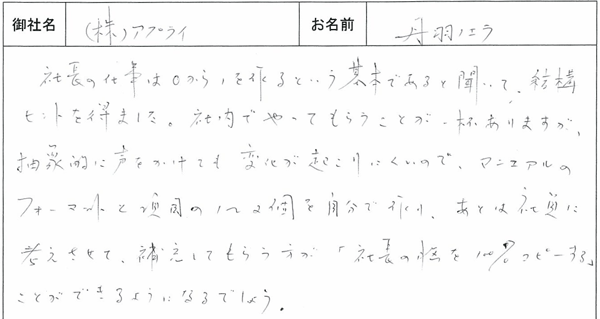 御社名 (株)アプライ お名前 丹羽ノエラ
社長の仕事は0から1を作るという基本であると聞いて、結構
ヒントを得ました。社内でやってもらうことが一杯ありますが、
抽象的に声をかけても変化が起こりにくいので、マニュアルの
フォーマットと項目の1〜2個を自分で作り、あとは社員に
考えさせて、補完してもらう方が「社長の脳を100%コピーする」
ことができるようになるでしょう。